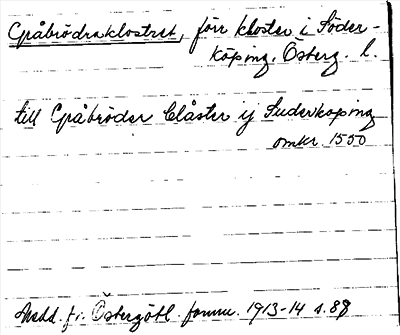 Gråbrödraklostret, förr kloster i Söder-
köping. Österg. l.
till Gråbröder Clåster ij Suderkoping
omkr. 1550
Medd. fr. Östergötl. fornm. 1913-14 s. 88